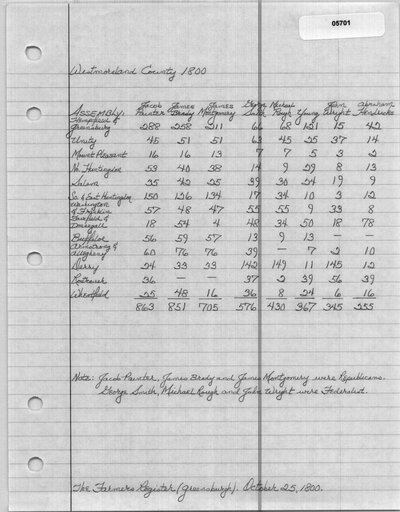 05701
Westmoreland County 1800
Jacob James James George Michael John Abraham
ASSEMBLY: Painter Brady Montgomery Smith Rough Young Wright Hendricks
Hempfield &
Greensburg 288 258 211 66 68 121 15 42
Unity 45 51 51 63 45 25 37 14
Mount Pleasant 16 16 13 7 7 5 3 2
No. Huntingdon 53 40 38 14 9 29 8 13
Salem 35 42 25 39 30 24 19 9
So. & East Huntingdon 150 126 134 17 34 10 3 12
Washington
& Franklin 57 48 47 55 55 9 33 8
Fairfield &
Donegall 18 54 4 48 34 50 18 78
Buffaloe 56 59 57 13 9 13 —
Armstrong &
Allegheny 60 76 76 39 — 7 2 10
Derry 24 33 33 142 149 11 145 12
Rostraver 36 — — 37 2 39 56 39
Wheatfield 25 48 16 36 8 24 6 16
863 851 705 576 430 367 345 255
Note: Jacob Painter, James Brady and James Montgomery were Republicans.
George Smith, Michael Rough and John Wright were Federalist.
The Farmers Register (Greensburgh). October 25, 1800.